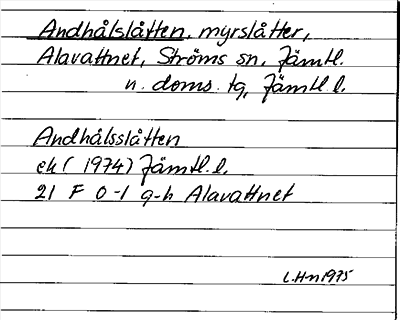 Andhålslåtten, myrslåtter,
Alavattnet, Ströms sn, Jämtl.
n. doms. tg, Jämtl. l.
Andhålsslåtten
ek (1974) Jämtl. l.
21 F 0-1 g-h Alavattnet
L.Hn 1975